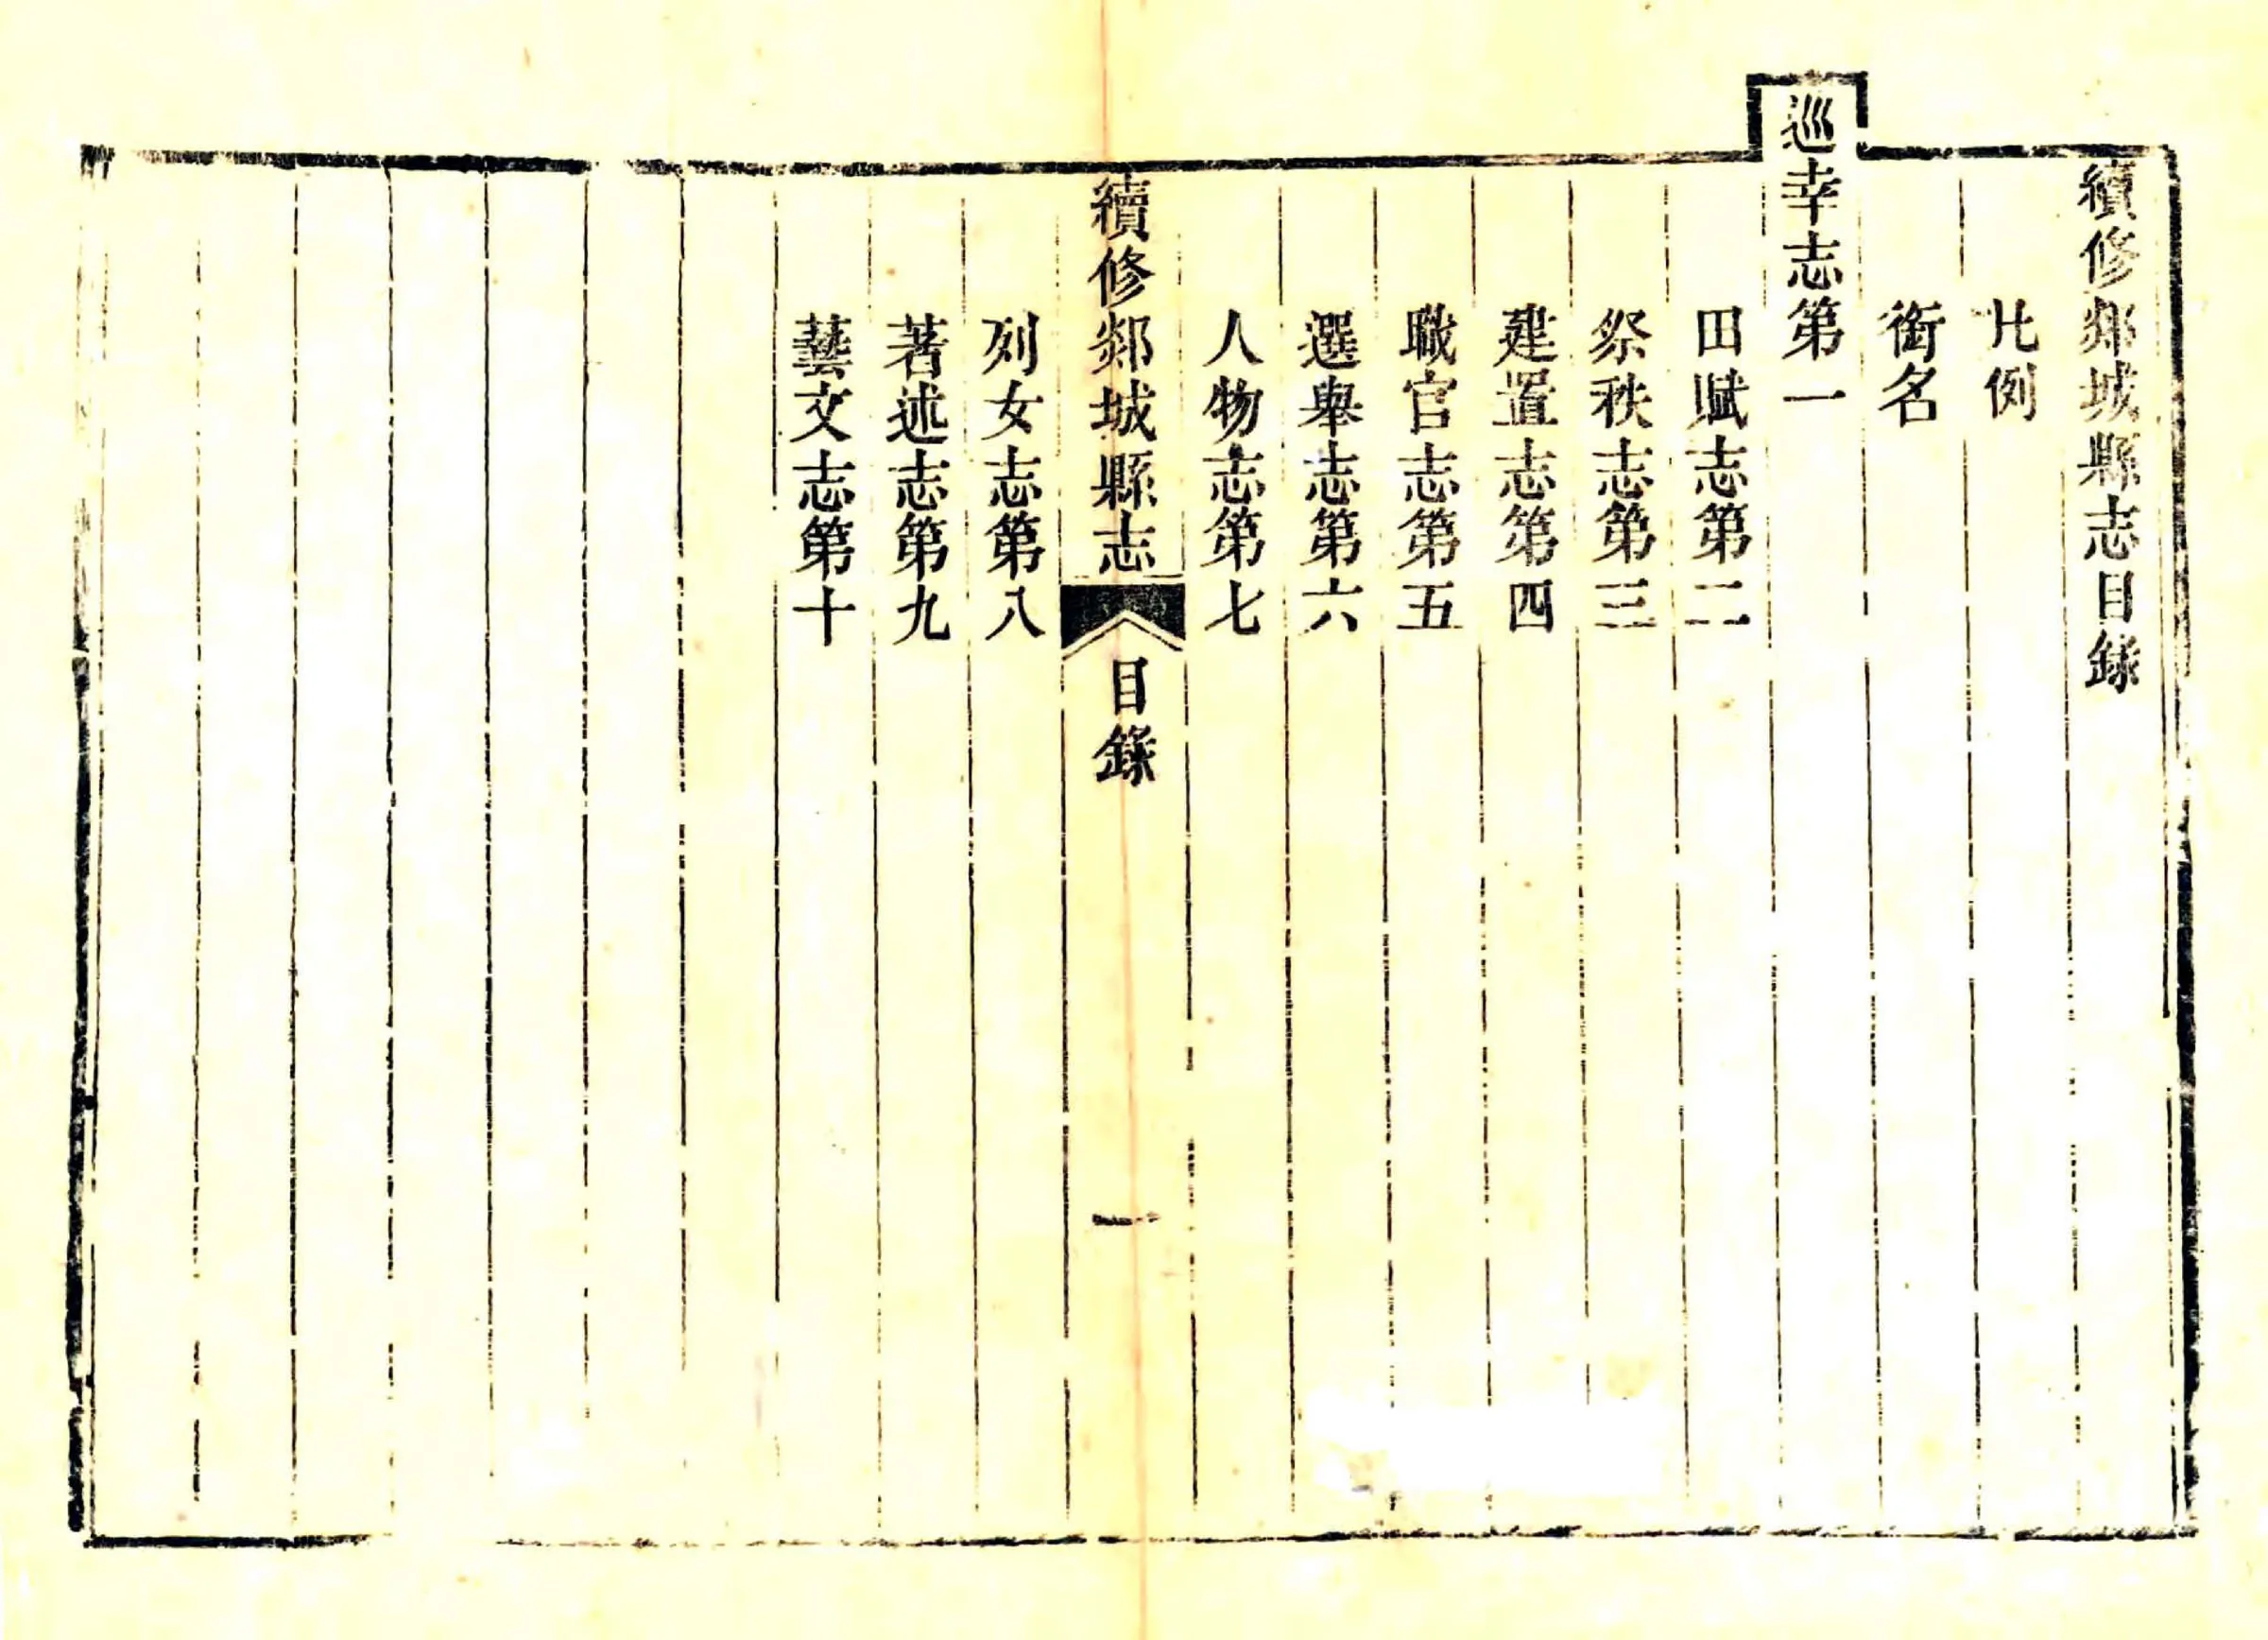 續修郯城縣志目錄
凡例
銜名
巡幸志第一
田賦志第二
祭秩志第三
建置志第四
職官志第五
選舉志第六
人物志第七
續修郯城縣志
目錄
一
列女志第八
著述志第九
藝文志第十